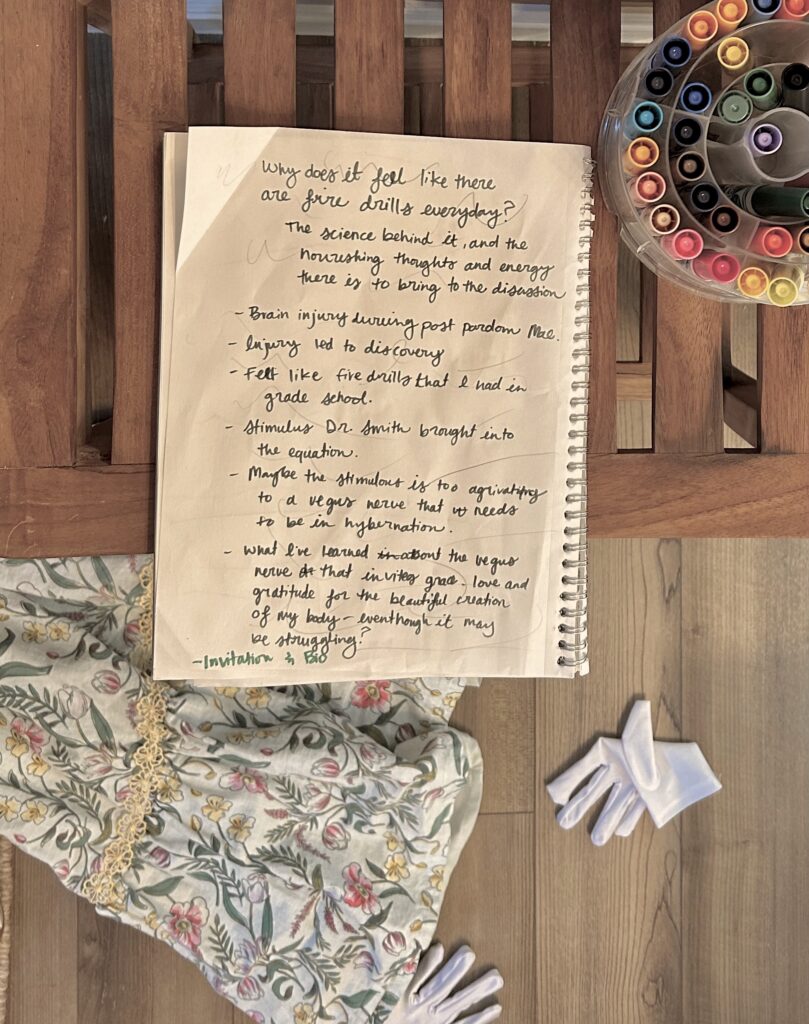 Why does it feel like there
are fire drills everyday?
The science behind it, and the
nourishing thoughts and energy
there is to bring to the disussion
- Brain injury durring post pardom Mae.
- Injury led to discovery
- Felt like fire drills that I had in
grade school.
- Stimulus Dr. Smith brought into
the equation.
- Maybe the stimulous is too agrivating
to a vegus nerve that needs
to be in hybernation.
- What I've learned about the vegus
nerve that invites grace, love and
gratitude for the beautiful creation
of my body - eventhough it may
be struggling?
- Invitation & Bio